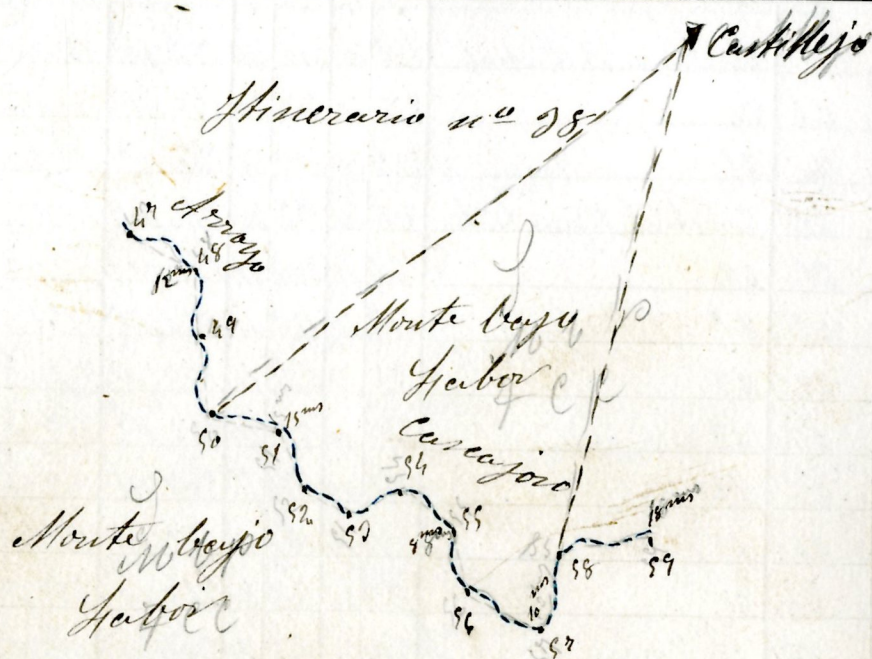 Castillejo
Itinerario nº 38
Arroyo
47
48
12ms
49
Monte bajo
Labor
Cascajoso
50
51
15ms
52
53
54
55
56
10ms
57
58
18ms
59
Monte bajo
Labor